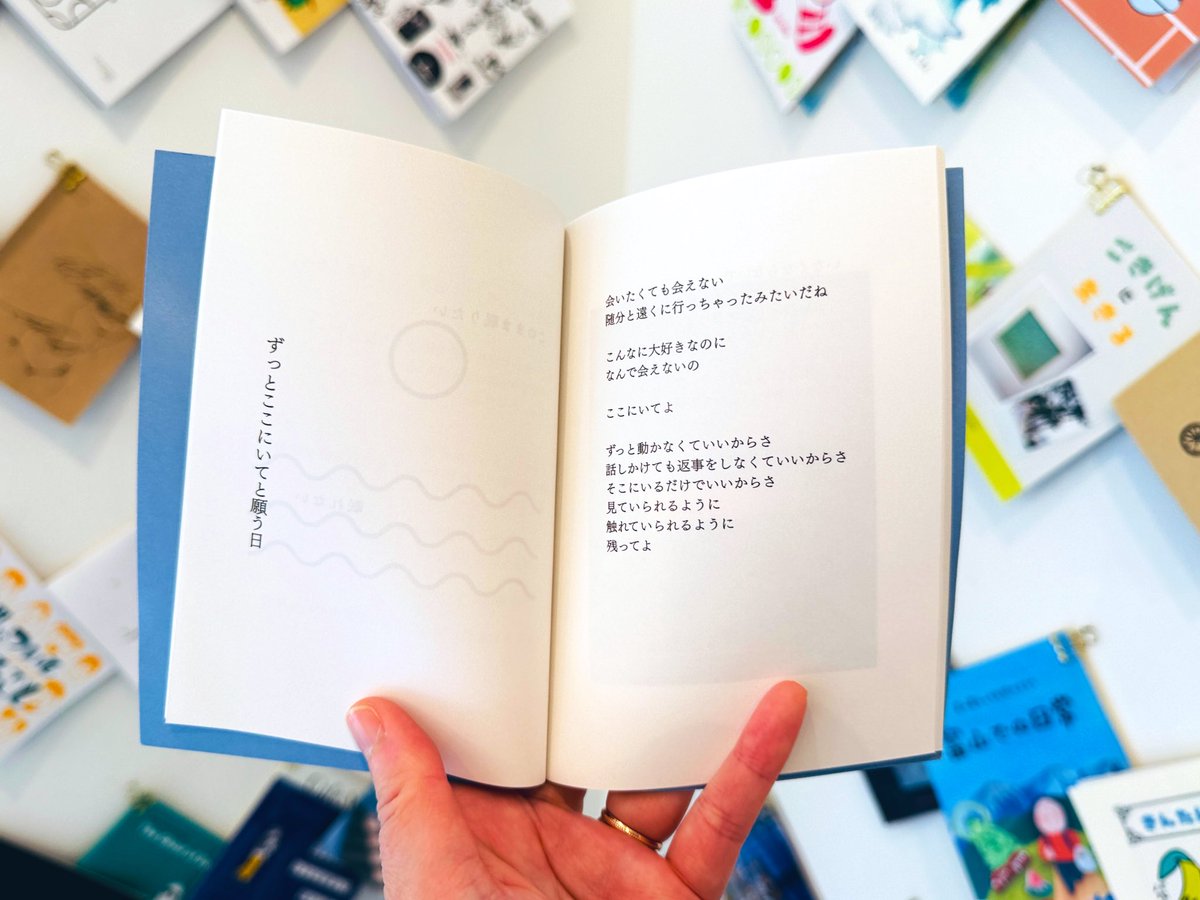 ずっとここにいてと願う日
会いたくても会えない
随分と遠くに行っちゃったみたいだね
こんなに大好きなのに
なんで会えないの
ここにいてよ
ずっと動かなくていいからさ
話しかけても返事をしなくていいからさ
そこにいるだけでいいからさ
見ていられるように
触れていられるように
残ってよ